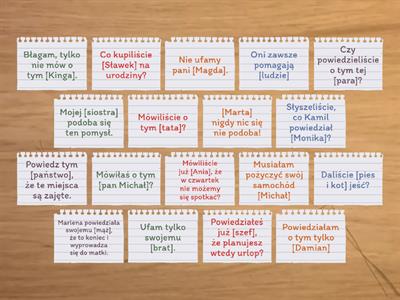 Błagam, tylko
nie mów o
tym [Kinga].
Co kupiliście
[Sławek] na
urodziny?
Nie ufamy
pani [Magda].
Oni zawsze
pomagają
[ludzie]
Czy
powiedzieliście
o tym tej
[para]?
Mojej [siostra]
podoba się
ten pomysł.
Mówiliście o
tym [tata]?
[Marta]
nigdy nic się
nie podoba!
Słyszeliście,
co Kamil
powiedział
[Monika]?
Powiedz tym
[państwo],
że te miejsca
są zajęte.
Mówiłaś o tym
[pan Michał]?
Mówiliście
już [Ania], że
w czwartek
nie możemy
się spotkać?
Musiałam
pożyczyć swój
samochód
[Michał]
Daliście [pies
i kot] jeść?
Marlena powiedziała
swojemu [mąż],
że to koniec i
wyprowadza
się do matki.
Ufam tylko
swojemu
[brat].
Powiedziałeś
już [szef],
że planujesz
wtedy urlop?
Powiedziałam
o tym tylko
[Damian]